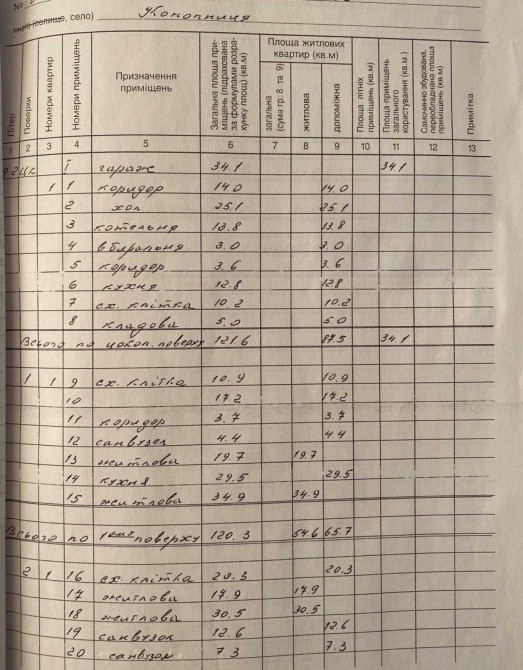 №
місто (селище, село) Конопниця
Літер
Поверхи
Номери квартир
Номери приміщень
Призначення приміщень
Загальна площа приміщень (підрахована за формулами розрахунку площ) (кв.м)
Площа житлових квартир (кв.м)
загальна (сума гр. 8 та 9)
житлова
допоміжна
Площа літніх приміщень (кв.м)
Площа приміщень загального користування (кв.м)
Самочинно збудована, переобладнана площа приміщень (кв.м)
Примітка
1 2 3 4 5 6 7 8 9 10 11 12 13
цок I гараж 34.1 34.1
1 1 коридор 14.0 14.0
2 хол 25.1 25.1
3 котельня 13.8 13.8
4 вбиральня 3.0 3.0
5 коридор 3.6 3.6
6 кухня 12.8 12.8
7 сх. клітка 10.2 10.2
8 кладова 5.0 5.0
Всього по цокол. поверху 121.6 87.5 34.1
1 1 9 сх. клітка 10.9 10.9
10 17.2 17.2
11 коридор 3.7 3.7
12 санвузел 4.4 4.4
13 житлова 19.7 19.7
14 кухня 29.5 29.5
15 житлова 34.9 34.9
Всього по 1ому поверху 120.3 54.6 65.7
2 1 16 сх. клітка 20.3 20.3
17 житлова 17.9 17.9
18 житлова 30.5 30.5
19 санвузол 12.6 12.6
20 санвузол 7.3 7.3